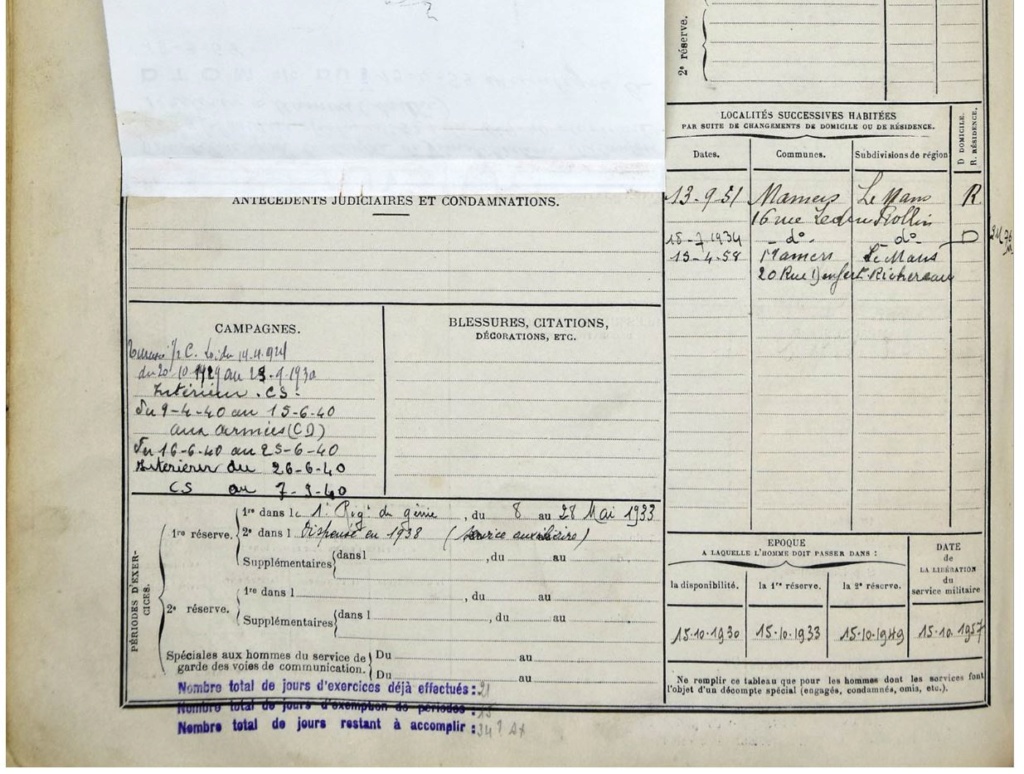 2e réserve.
LOCALITÉS SUCCESSIVES HABITÉES
PAR SUITE DE CHANGEMENTS DE DOMICILE OU DE RÉSIDENCE.
D DOMICILE.
R. RÉSIDENCE.
Dates. Communes. Subdivisions de région
13-9-51 Mamers Le Mans R
16 rue Ledru Rollin
15-7-1934 - d° - d° D
13-4-58 Mamers Le Mans
20 Rue Denfert
ANTÉCÉDENTS JUDICIAIRES ET CONDAMNATIONS.
CAMPAGNES.
C. Loi du
du 20 10 1929 au 1930
Intérieur . CS.
Du 9-4-40 au 15-6-40
aux armées (CD)
Du 16-6-40 au 25-6-40
Intérieur du 26-6-40
CS au 7-9-40
BLESSURES, CITATIONS,
DÉCORATIONS, ETC.
PÉRIODES D'EXERCICES.
1re réserve.
1re dans le 1° Rég' du génie , du 8 au 28 Mai 1933
2e dans l Dispensé en 1938 (service auxiliaire)
Supplémentaires
dans l , du au
dans l , du au
2e réserve.
1re dans l , du au
Supplémentaires
dans l , du au
dans l , du au
Spéciales aux hommes du service de
garde des voies de communication.
Du au
Du au
Nombre total de jours d'exercices déjà effectués : 21
Nombre total de jours d'exemption de périodes :
Nombre total de jours restant à accomplir :
EPOQUE
A LAQUELLE L'HOMME DOIT PASSER DANS :
DATE
de
LA LIBÉRATION
du
service militaire
la disponibilité. la 1re réserve. la 2e réserve.
15.10.1930 15.10.1933 15.10.1949 15.10.1957
Ne remplir ce tableau que pour les hommes dont les services font
l'objet d'un décompte spécial (engagés, condamnés, omis, etc.).